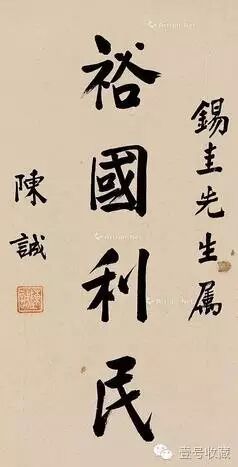 錫圭先生属
裕國利民
陳誠
壹号收藏